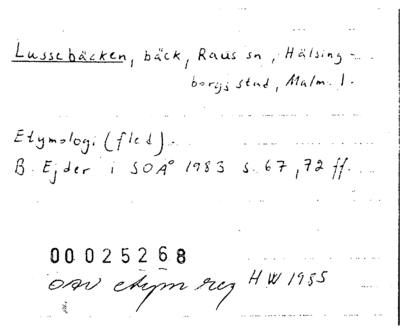 Lussebäcken, bäck, Raus sn, Hälsing-
borgs stad, Malm. l.
Etymologi (fled).
B. Ejder i SOÅ 1983 s. 67, 72 ff.
00025268
OAU etym reg HW 1985